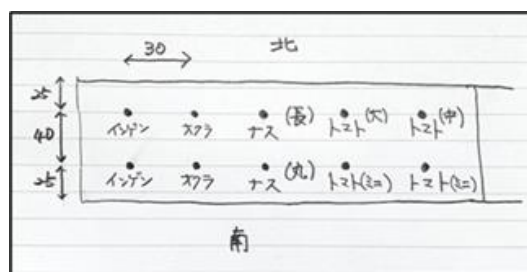 北
30
25
インゲン オクラ ナス(長) トマト(大) トマト(中)
40
インゲン オクラ ナス(丸) トマト(ミニ) トマト(ミニ)
25
南